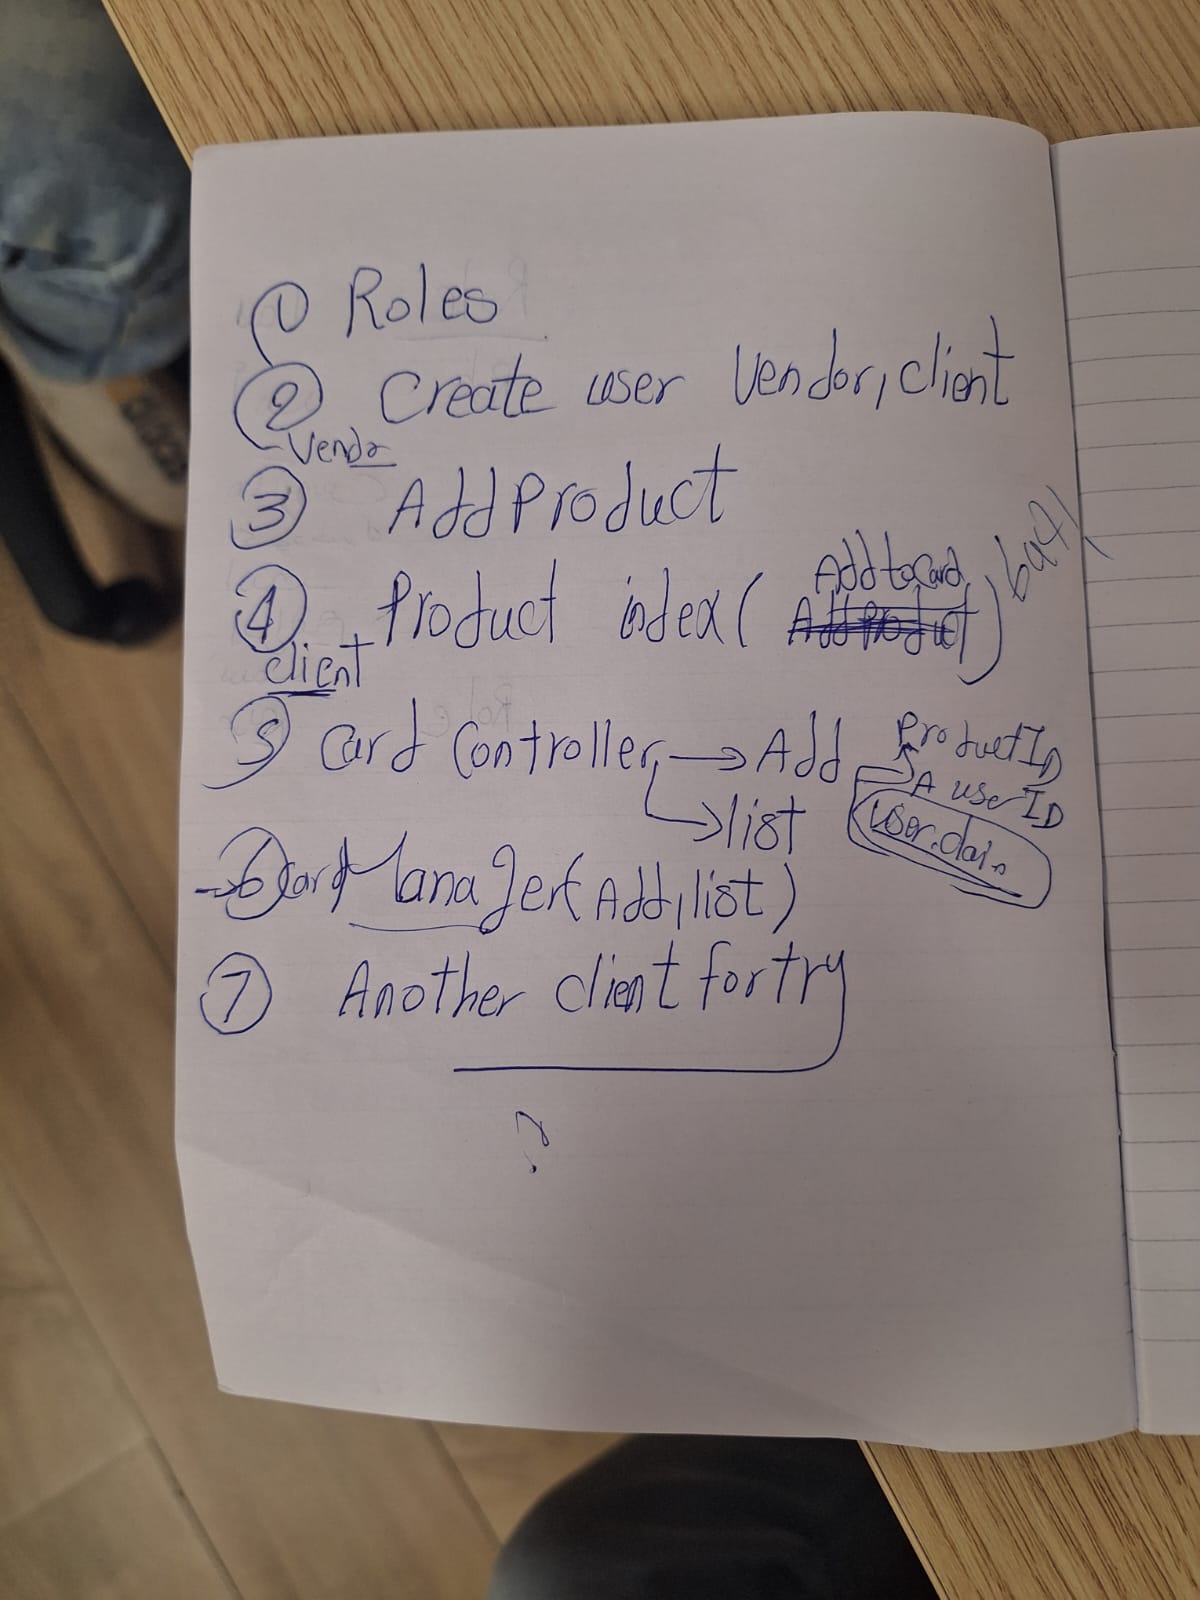 ① Roles
② Create user Vendor, client
Vendor
③ Add Product
④ Product index ( Add to Card )
client
⑤ Card Controller → Add ProductID
A userID
→ list
→ ⑥ Card Manager ( Add, list )
⑦ Another client for try
?